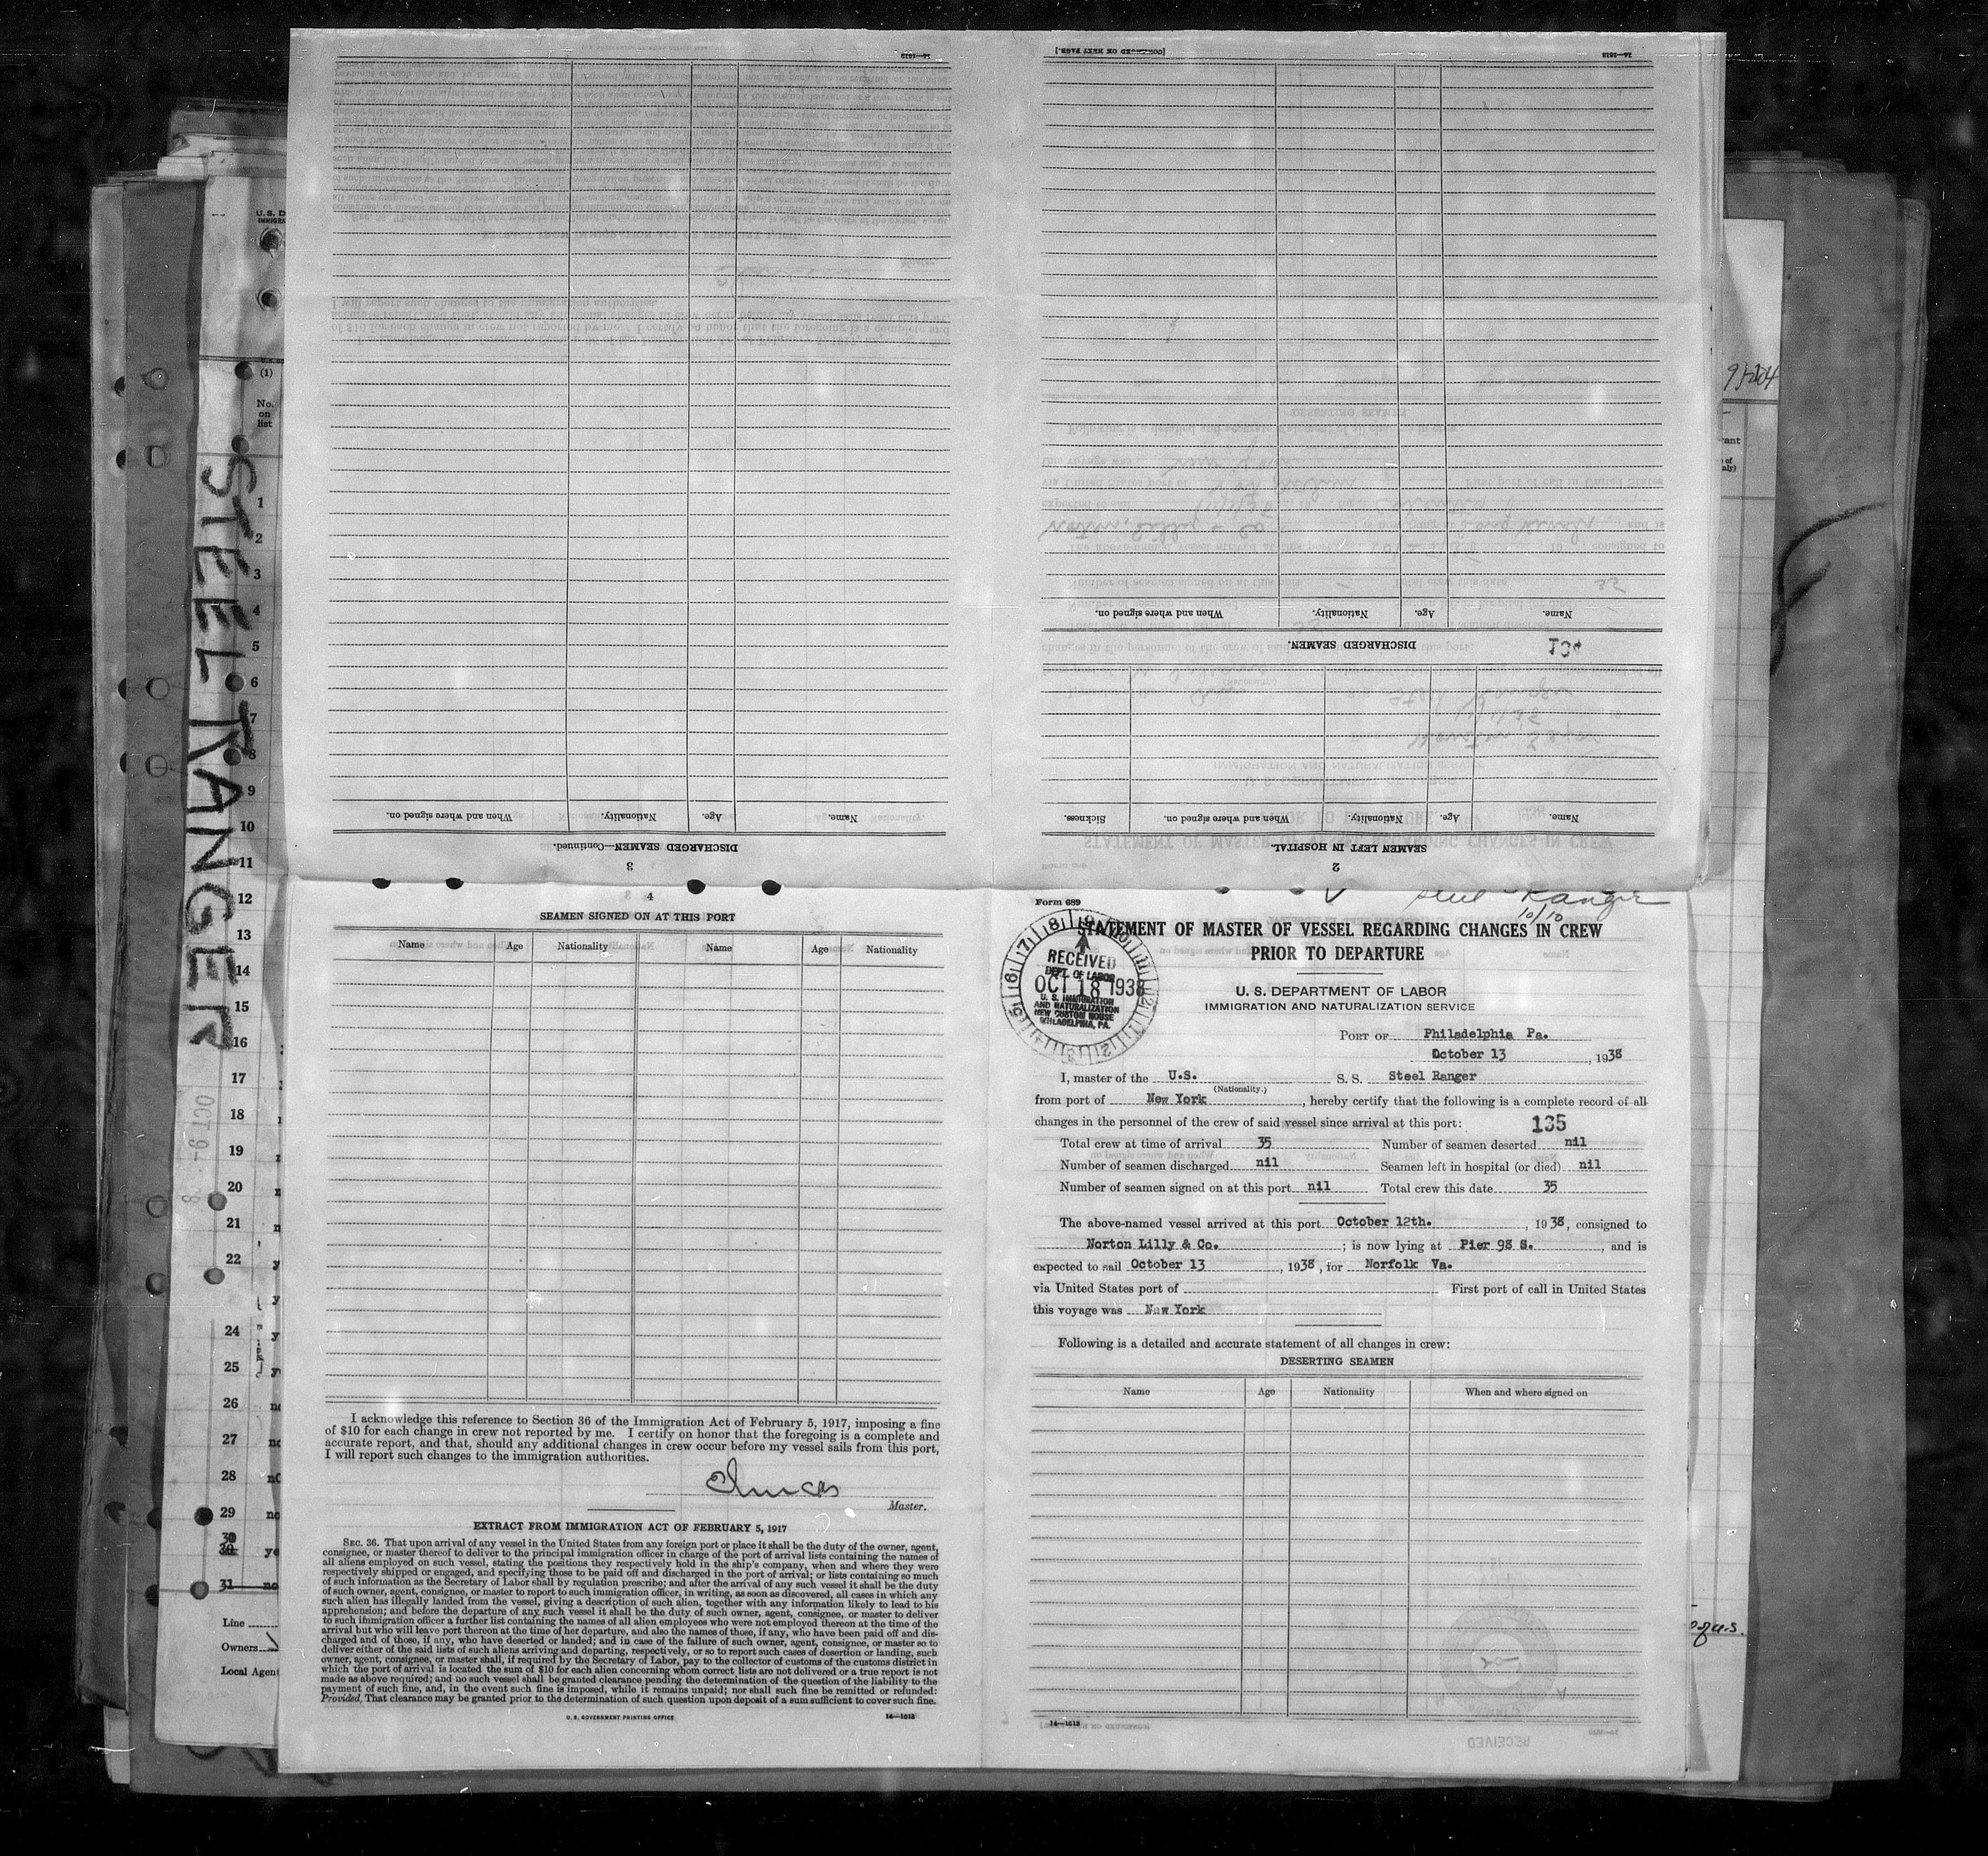 STEEL RANGER
U.S. D
IMMIGRA
(1)
No.
on
list
1
2
3
4
5
6
7
8
9
10
11
12
13
14
15
16
17
18
19
20
21
22
24
25
26
27
28
29
30
31
Line
Owners
Local Agent
OCT 9
14—1613
[CONTINUED ON NEXT PAGE.]
14—1613
DISCHARGED SEAMEN.
Name. Age. Nationality. When and where signed on.
SEAMEN LEFT IN HOSPITAL
Name. Age. Nationality. When and where signed on. Sickness.
2
DISCHARGED SEAMEN—Continued.
Name. Age. Nationality. When and where signed on.
3
4
SEAMEN SIGNED ON AT THIS PORT
Name Age Nationality Name Age Nationality
I acknowledge this reference to Section 36 of the Immigration Act of February 5, 1917, imposing a fine
of $10 for each change in crew not reported by me. I certify on honor that the foregoing is a complete and
accurate report, and that, should any additional changes in crew occur before my vessel sails from this port,
I will report such changes to the immigration authorities.
Master.
EXTRACT FROM IMMIGRATION ACT OF FEBRUARY 5, 1917
SEC. 36. That upon arrival of any vessel in the United States from any foreign port or place it shall be the duty of the owner, agent,
consignee, or master thereof to deliver to the principal immigration officer in charge of the port of arrival lists containing the names of
all aliens employed on such vessel, stating the positions they respectively hold in the ship's company, when and where they were
respectively shipped or engaged, and specifying those to be paid off and discharged in the port of arrival; or lists containing so much
of such information as the Secretary of Labor shall by regulation prescribe; and after the arrival of any such vessel it shall be the duty
of such owner, agent, consignee, or master to report to such immigration officer, in writing, as soon as discovered, all cases in which any
such alien has illegally landed from the vessel, giving a description of such alien, together with any information likely to lead to his
apprehension; and before the departure of any such vessel it shall be the duty of such owner, agent, consignee, or master to deliver
to such immigration officer a further list containing the names of all alien employees who were not employed thereon at the time of the
arrival but who will leave port thereon at the time of her departure, and also the names of those, if any, who have been paid off and dis-
charged and of those, if any, who have deserted or landed; and in case of the failure of such owner, agent, consignee, or master so to
deliver either of the said lists of such aliens arriving and departing, respectively, or so to report such cases of desertion or landing, such
owner, agent, consignee, or master shall, if required by the Secretary of Labor, pay to the collector of customs of the customs district in
which the port of arrival is located the sum of $10 for each alien concerning whom correct lists are not delivered or a true report is not
made as above required; and no such vessel shall be granted clearance pending the determination of the question of the liability to the
payment of such fine, and, in the event such fine is imposed, while it remains unpaid; nor shall such fine be remitted or refunded:
Provided, That clearance may be granted prior to the determination of such question upon deposit of a sum sufficient to cover such fine.
U. S. GOVERNMENT PRINTING OFFICE 14—1613
Steel Ranger
10/10
Form 689
STATEMENT OF MASTER OF VESSEL REGARDING CHANGES IN CREW
PRIOR TO DEPARTURE
RECEIVED
DEPT. OF LABOR
OCT 18 1938
U. S. IMMIGRATION
AND NATURALIZATION
NEW CUSTOM HOUSE
PHILADELPHIA, PA.
U. S. DEPARTMENT OF LABOR
IMMIGRATION AND NATURALIZATION SERVICE
PORT OF Philadelphia Pa.
October 13, 1938
I, master of the U.S. S. S. Steel Ranger
(Nationality.)
from port of New York, hereby certify that the following is a complete record of all
changes in the personnel of the crew of said vessel since arrival at this port: 135
Total crew at time of arrival 35 Number of seamen deserted nil
Number of seamen discharged nil Seamen left in hospital (or died) nil
Number of seamen signed on at this port nil Total crew this date 35
The above-named vessel arrived at this port October 12th., 1938, consigned to
Norton Lilly & Co.; is now lying at Pier 98 S., and is
expected to sail October 13, 1938, for Norfolk Va.
via United States port of First port of call in United States
this voyage was New York
Following is a detailed and accurate statement of all changes in crew:
DESERTING SEAMEN
Name Age Nationality When and where signed on
14—1613